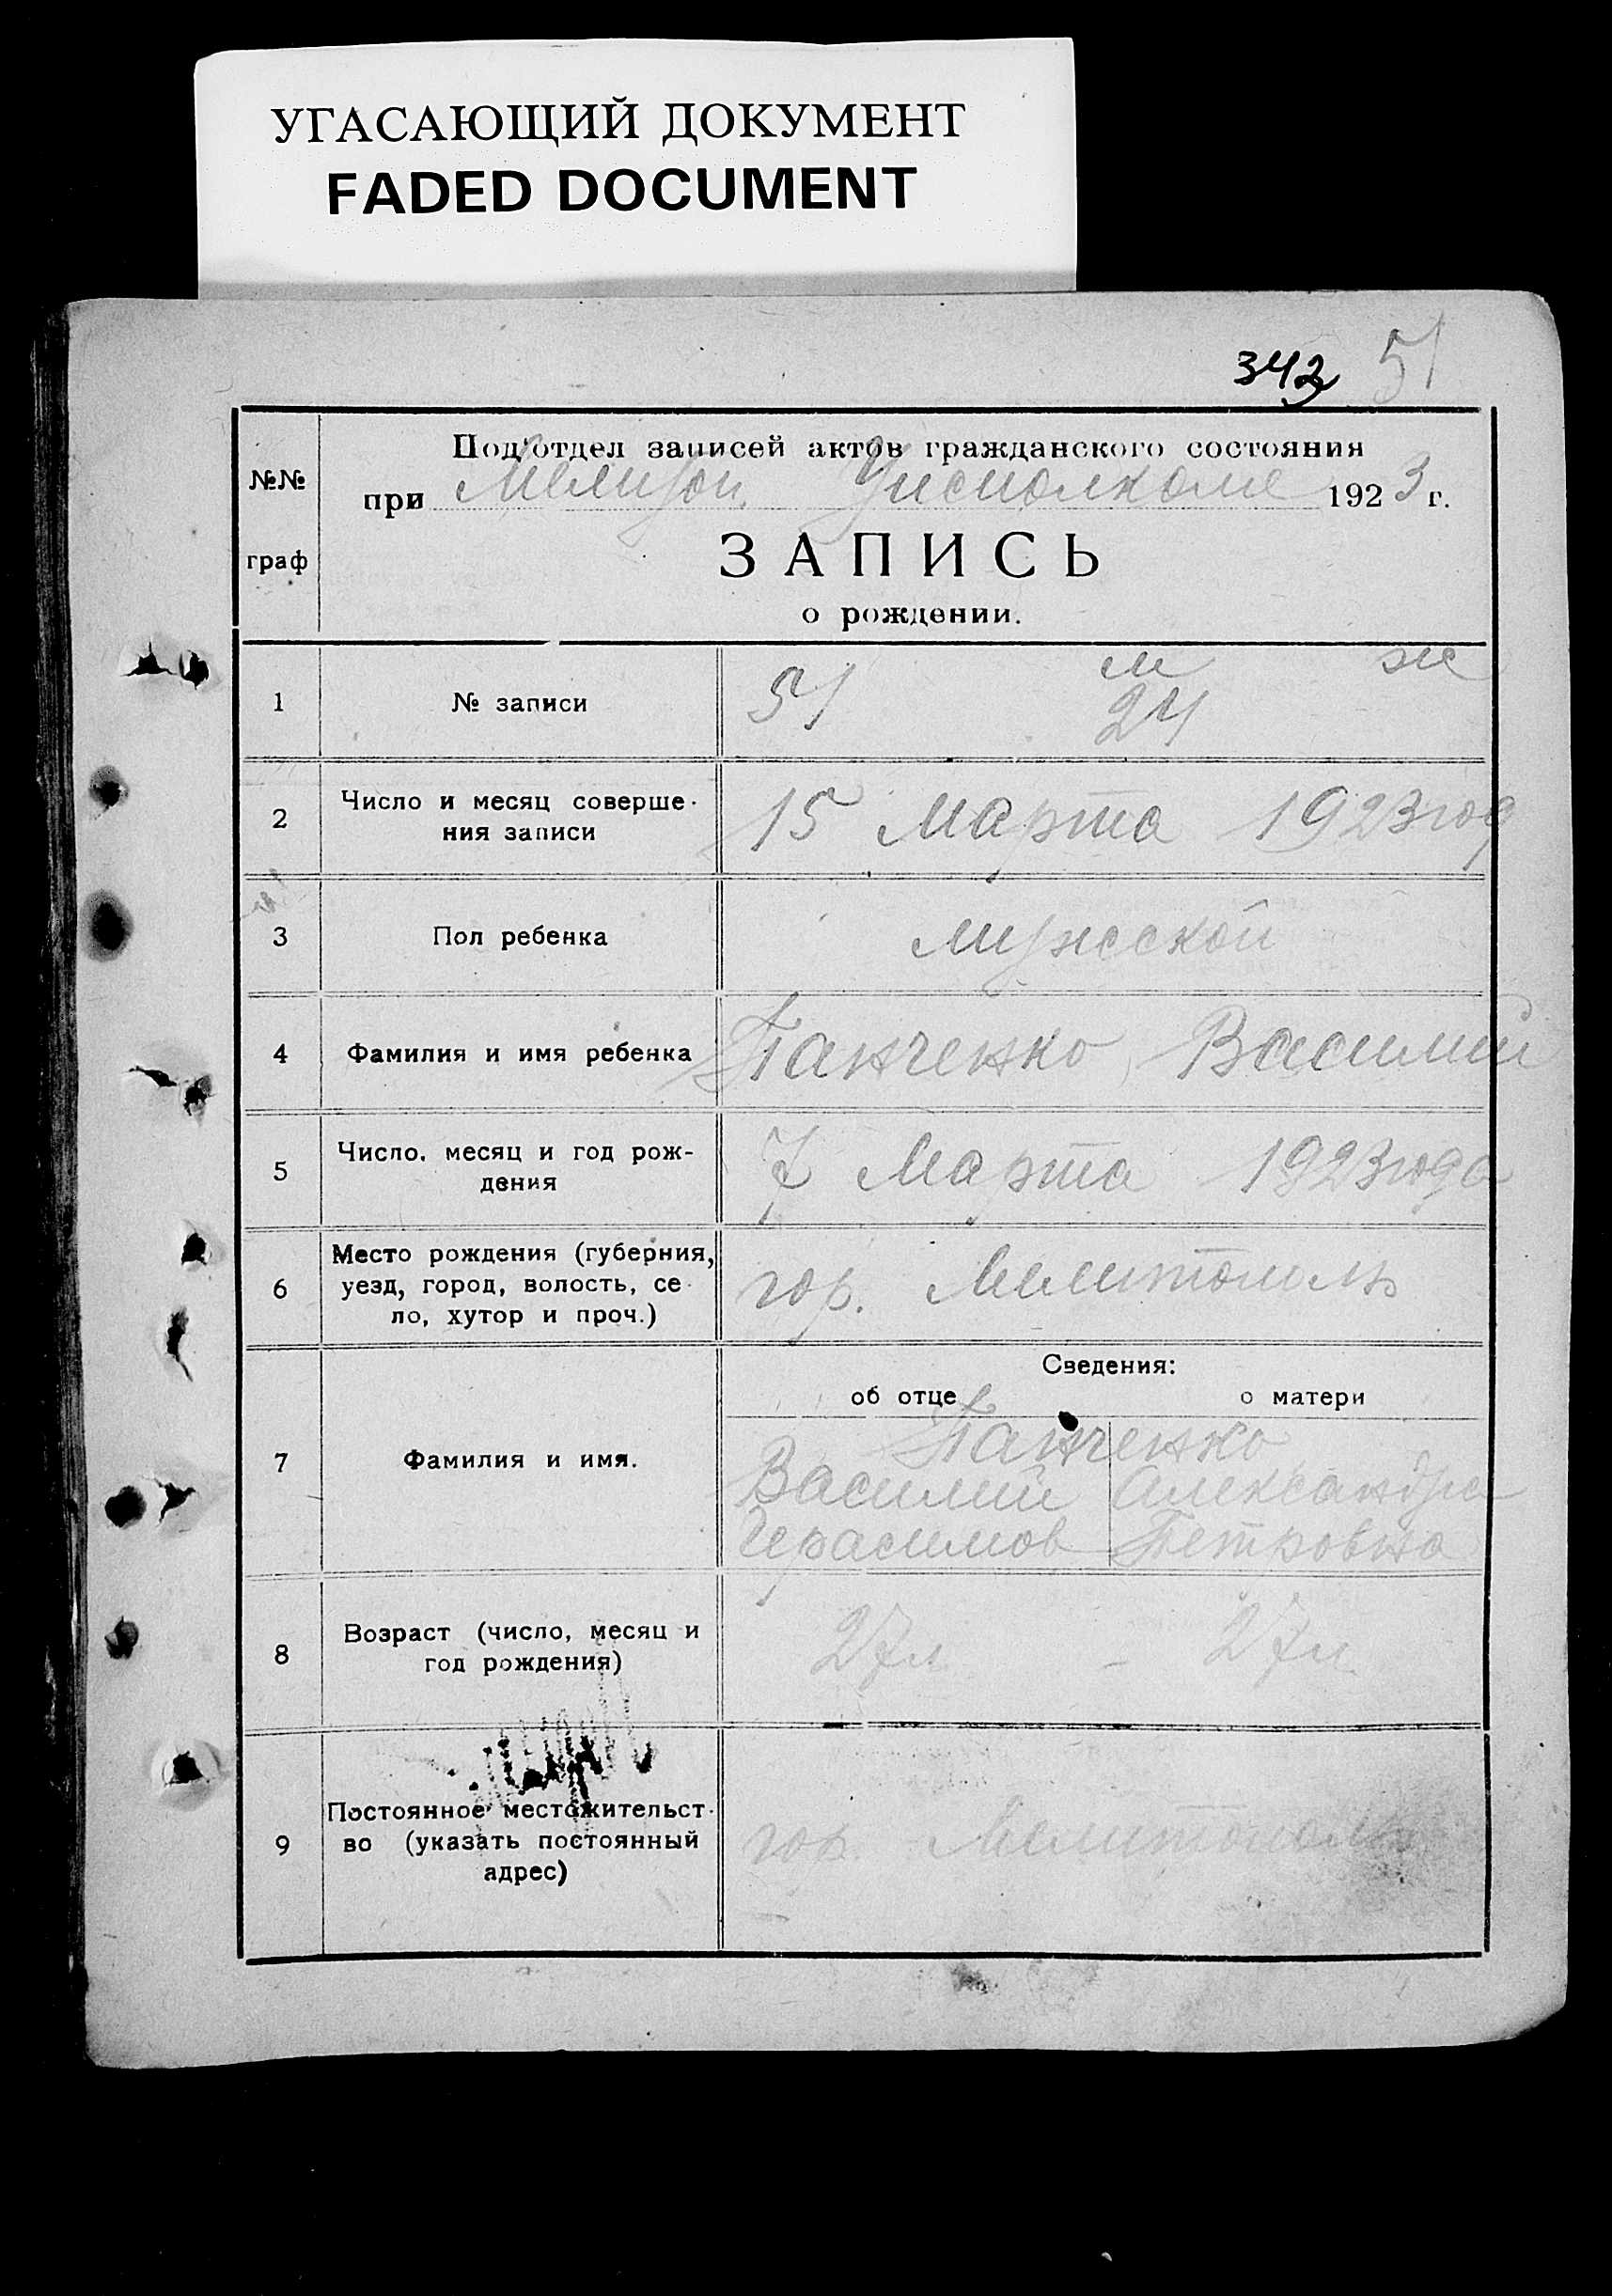 УГАСАЮЩИЙ ДОКУМЕНТ
FADED DOCUMENT
342 51
№№ граф
Под'отдел записей актов гражданского состояния
при Уисполкоме 1923 г.
ЗАПИСЬ
о рождении.
м ж
1 № записи 51 24
2 Число и месяц соверше-
ния записи 15 Марта 1923 год
3 Пол ребенка мужской
4 Фамилия и имя ребенка Панченко Василий
5 Число, месяц и год рож-
дения 7 Марта 1923 года
6 Место рождения (губерния,
уезд, город, волость, се-
ло, хутор и проч.) гор. Мелитополь
Сведения:
об отце о матери
7 Фамилия и имя. Панченко
Василий Александра
Герасимов Петровна
8 Возраст (число, месяц и
год рождения) 27 л - 27 л
9 Постоянное местожительст-
во (указать постоянный
адрес) гор. Мелитополь